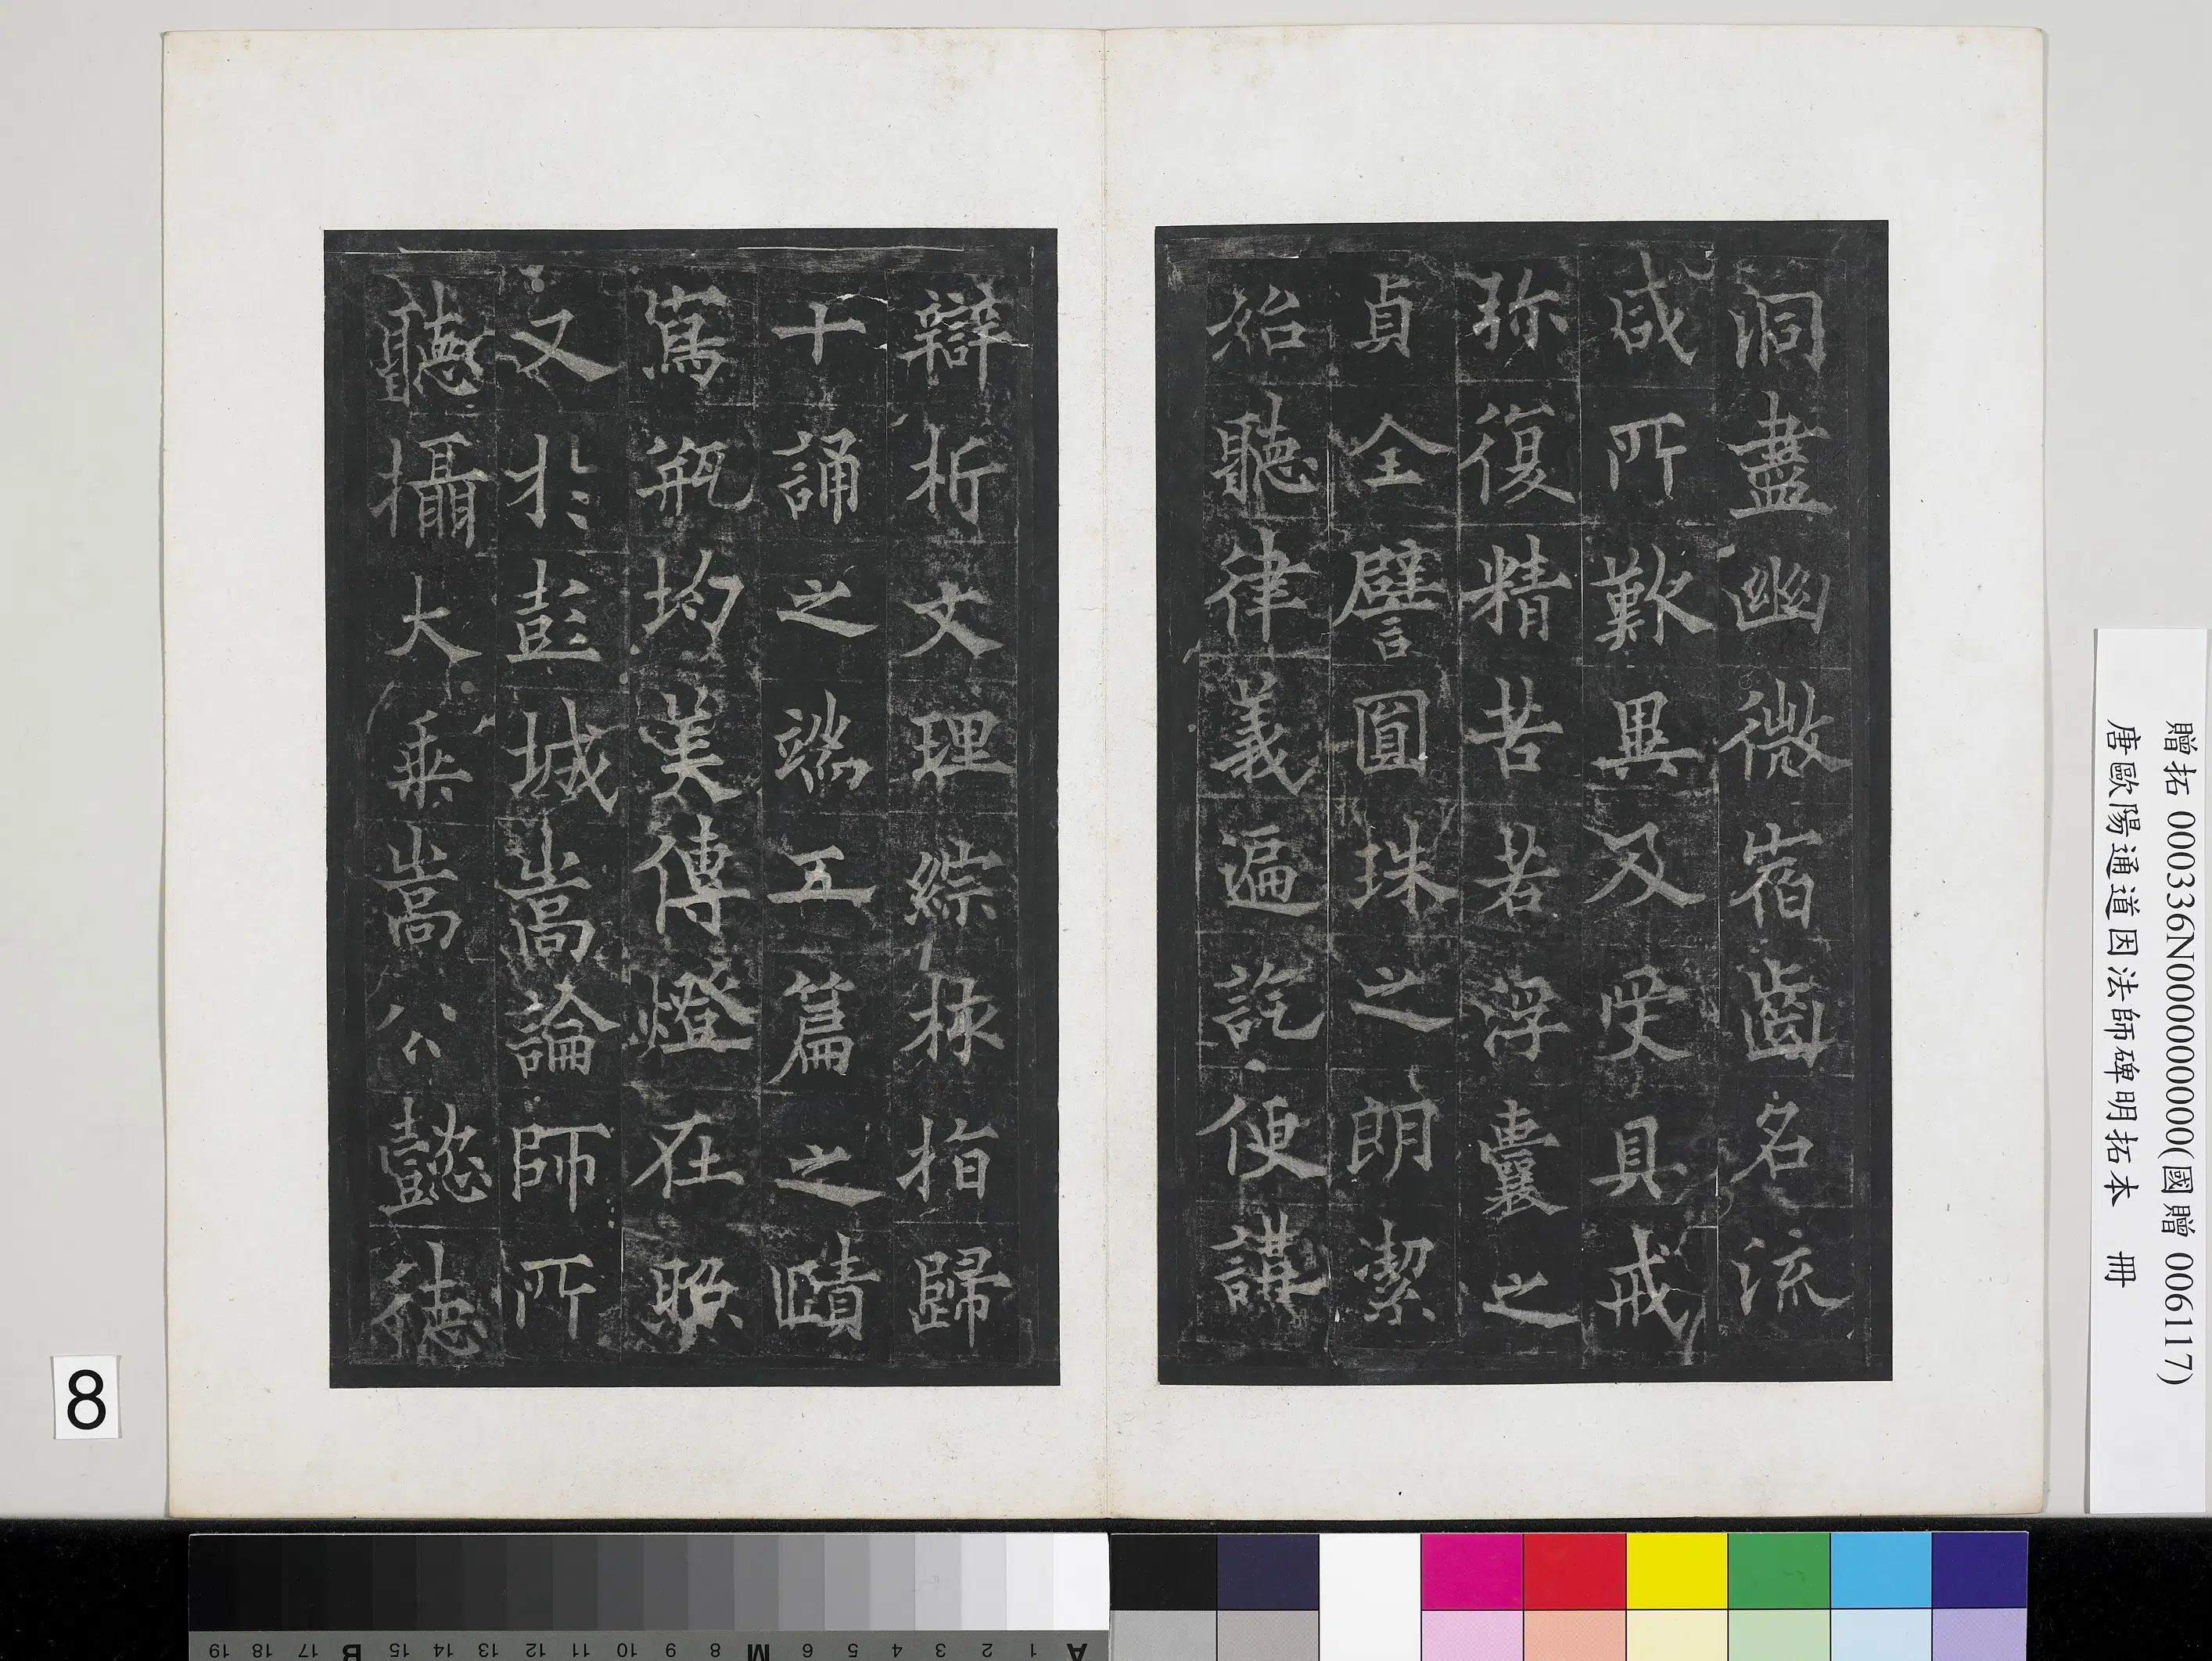 洞盡幽微宿齒名流
咸所歎異及受具戒
弥復精苦若浮囊之
貞全譬圓珠之朗潔
始聽律義遍訖便講
辯析文理綜核指歸
十誦之端五篇之賾
寫瓶均美傳燈在照
又於彭城嵩論師所
聽攝大乘嵩公懿德
贈拓 000336N000000000(國贈 006117)
唐歐陽通道因法師碑明拓本 冊
8
A 1 2 3 4 5 6 M 8 9 10 11 12 13 14 15 B 17 18 19